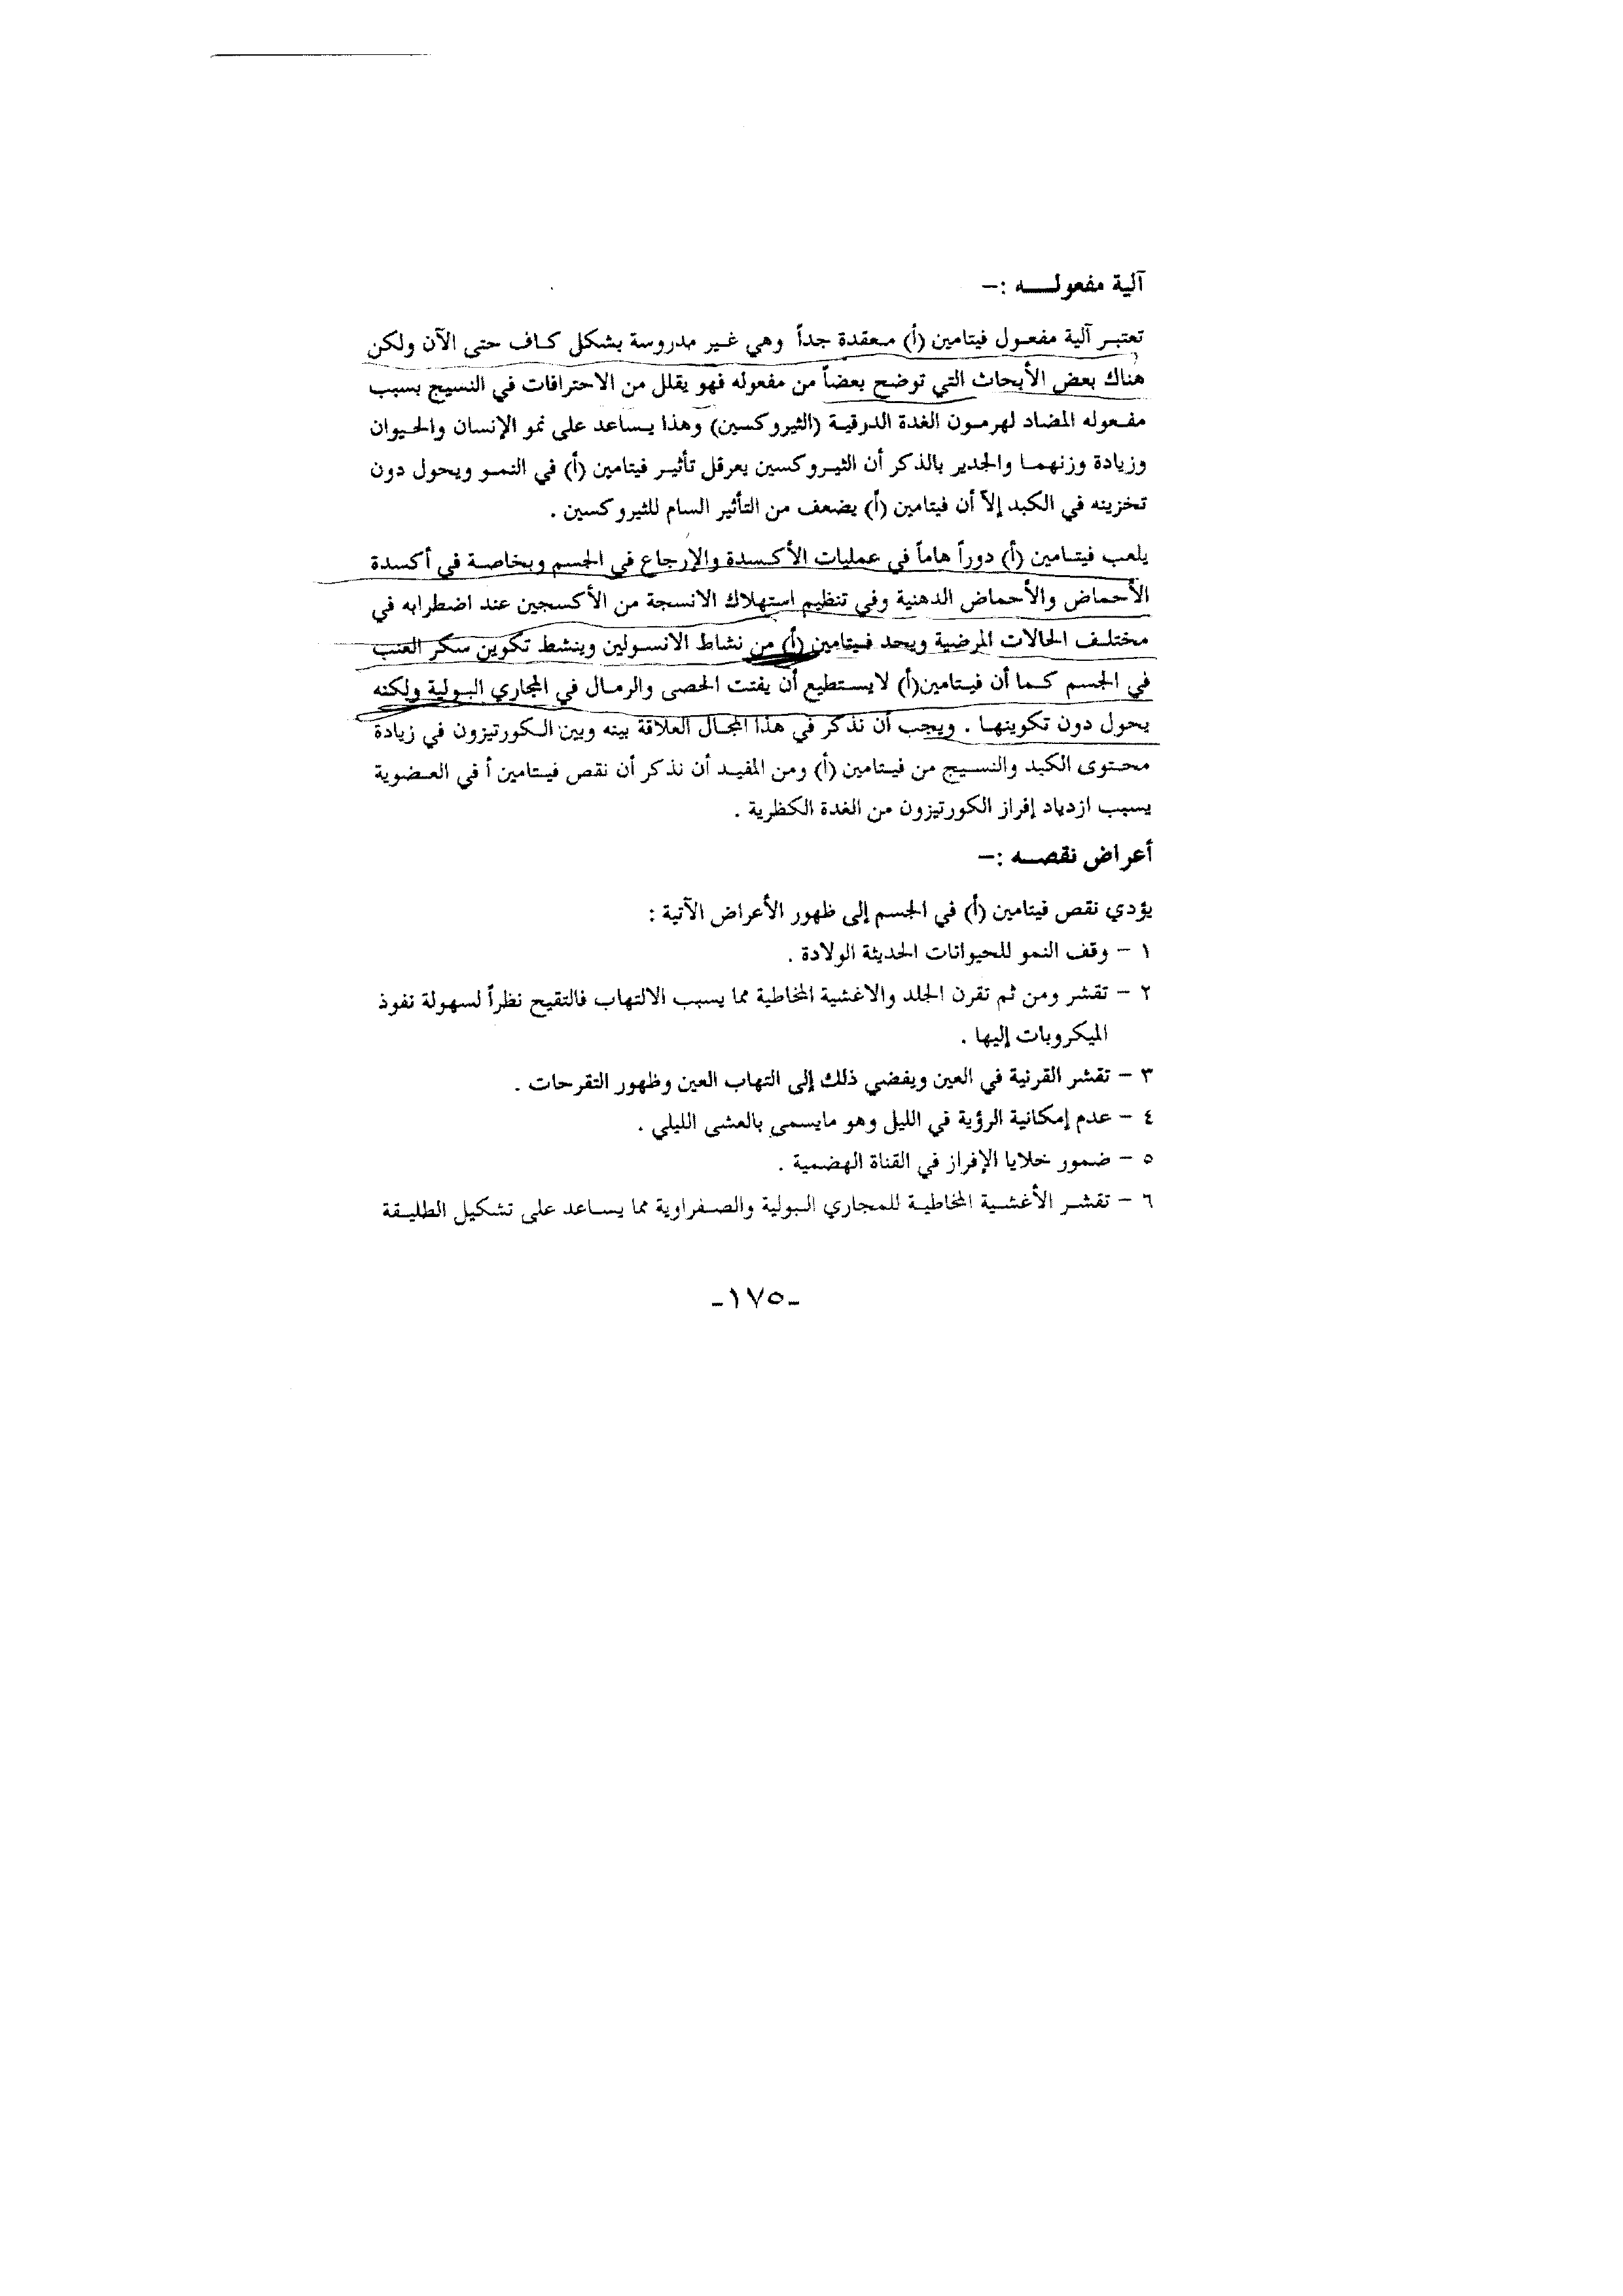 آلية مفعولـــه :-
تعتبـر آلية مفعـول فيتامين (أ) مـعقدة جداً وهي غـير مدروسة بشكل كـاف حتى الآن ولكن
هناك بعض الأبحاث التي توضح بعضاً من مفعوله فهو يقلل من الاحتراقات في النسيج بسبب
مفـعوله المضاد لهرمـون الغدة الدرقيـة (الثيروكسين) وهذا يـساعد على نمو الإنسان والحـيوان
وزيادة وزنهمـا والجدير بالذكر أن الثيـروكسين يعرقل تأثيـر فيتامين (أ) في النمـو ويحول دون
تخزينه في الكبد إلاّ أن فيتامين (أ) يضعف من التأثير السام للثيروكسين .
يلعب فيتـامين (أ) دوراً هاماً في عمليات الأكـسدة والإرجاع في الجسم وبخاصـة في أكسدة
الأحماض والأحماض الدهنية وفي تنظيم استهلاك الانسجة من الأكسجين عند اضطرابه في
مختلـف الحالات المرضية ويحد فـيتامين (أ) من نشاط الانسـولين وينشط تكوين سكر العنب
في الجسم كـما أن فيـتامين(أ) لايسـتطيع أن يفتت الحصى والرمـال في المجاري البـولية ولكنه
يحول دون تكوينهـا . ويجب أن نذكر في هذا المجـال العلاقة بينه وبين الـكورتيزون في زيادة
محـتوى الكبد والنسـيج من فيـتامين (أ) ومن المفيـد أن نذكر أن نقص فيـتامين أ في العـضوية
يسبب ازدياد إفراز الكورتيزون من الغدة الكظرية .
أعراض نقصــه :-
يؤدي نقص فيتامين (أ) في الجسم إلى ظهور الأعراض الآتية :
١ - وقف النمو للحيوانات الحديثة الولادة .
٢ - تقشر ومن ثم تقرن الجلد والاغشية المخاطية مما يسبب الالتهاب فالتقيح نظراً لسهولة نفوذ
الميكروبات إليها .
٣ - تقشر القرنية في العين ويفضي ذلك إلى التهاب العين وظهور التقرحات .
٤ - عدم إمكانية الرؤية في الليل وهو مايسمى بالعشى الليلي .
٥ - ضمور خلايا الإفراز في القناة الهضمية .
٦ - تقشـر الأغشـية المخاطيـة للمجاري البـولية والصـفراوية مما يسـاعد على تشكيل الطليـقة
-١٧٥-